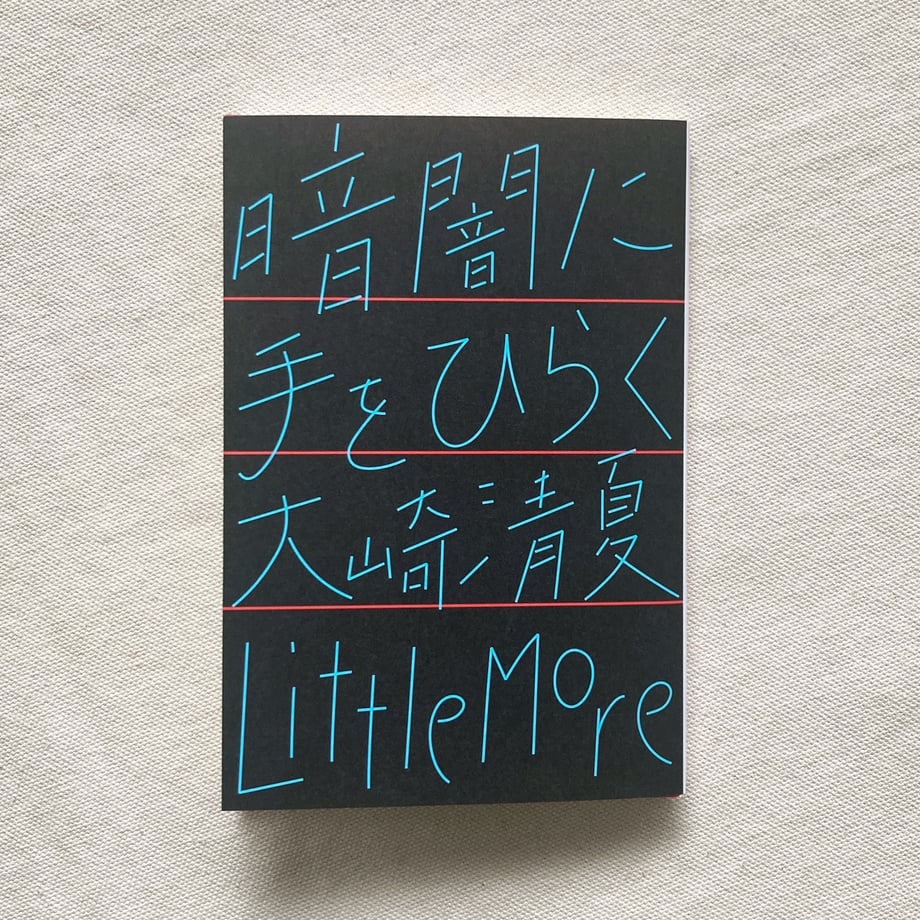 暗闇に
手をひらく
大崎清夏
LittleMore